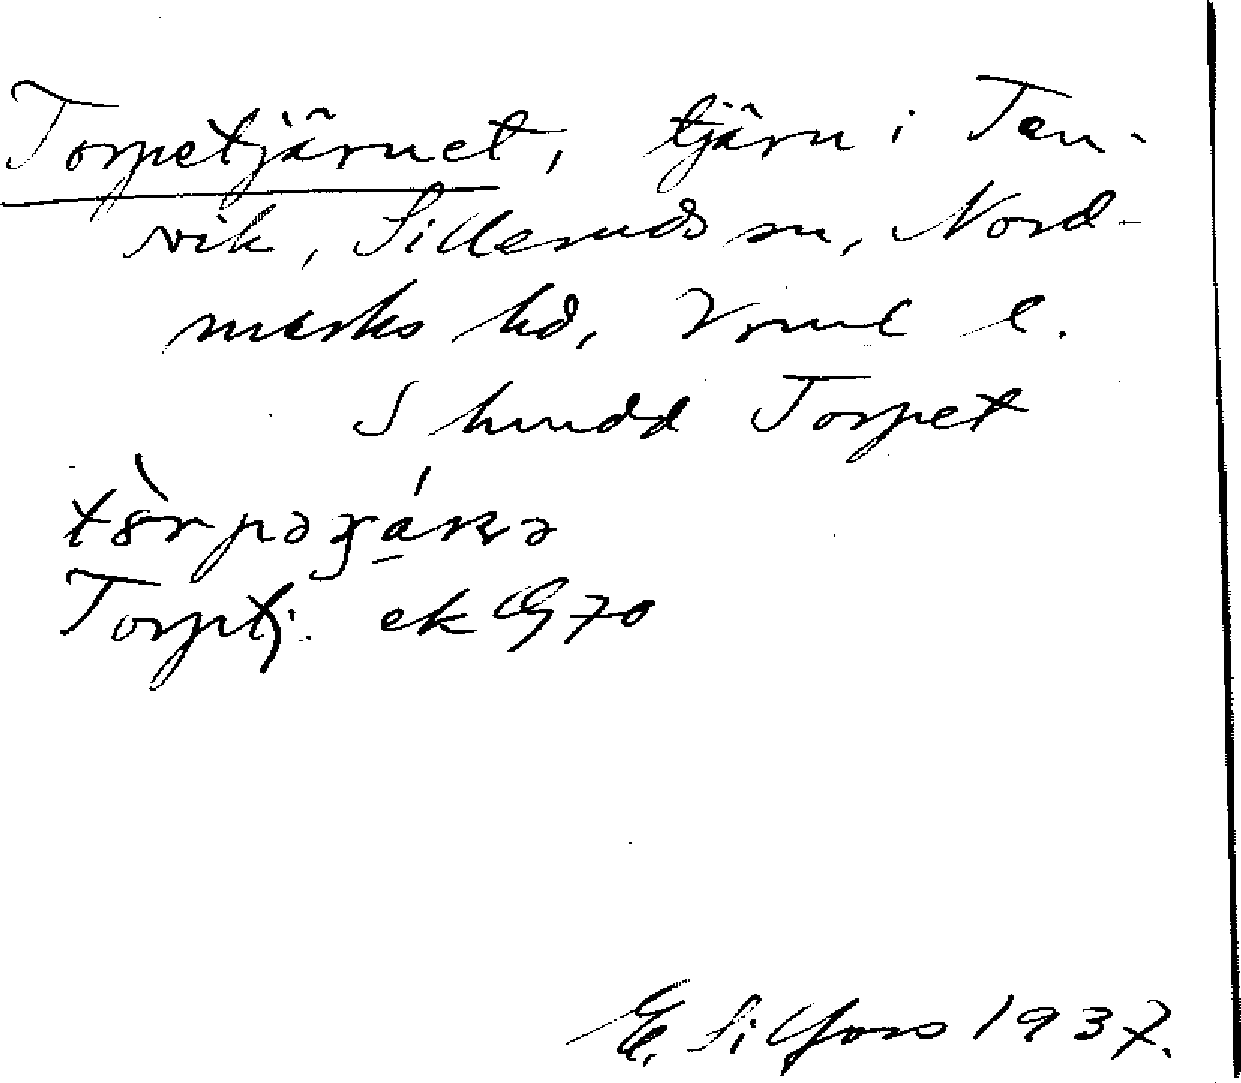 Torpetjärnet, tjärn i Ten-
vik, Silleruds sn, Nord-
marks hd, Vrml l.
S hmdd Torpet
Torptj. ek 70
E. Silfors 1937.